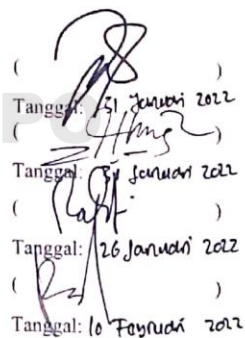 ( )
Tanggal: 31 Januari 2022
( )
Tanggal: 31 Januari 2022
( )
Tanggal: 26 Januari 2022
( )
Tanggal: 10 Februari 2022